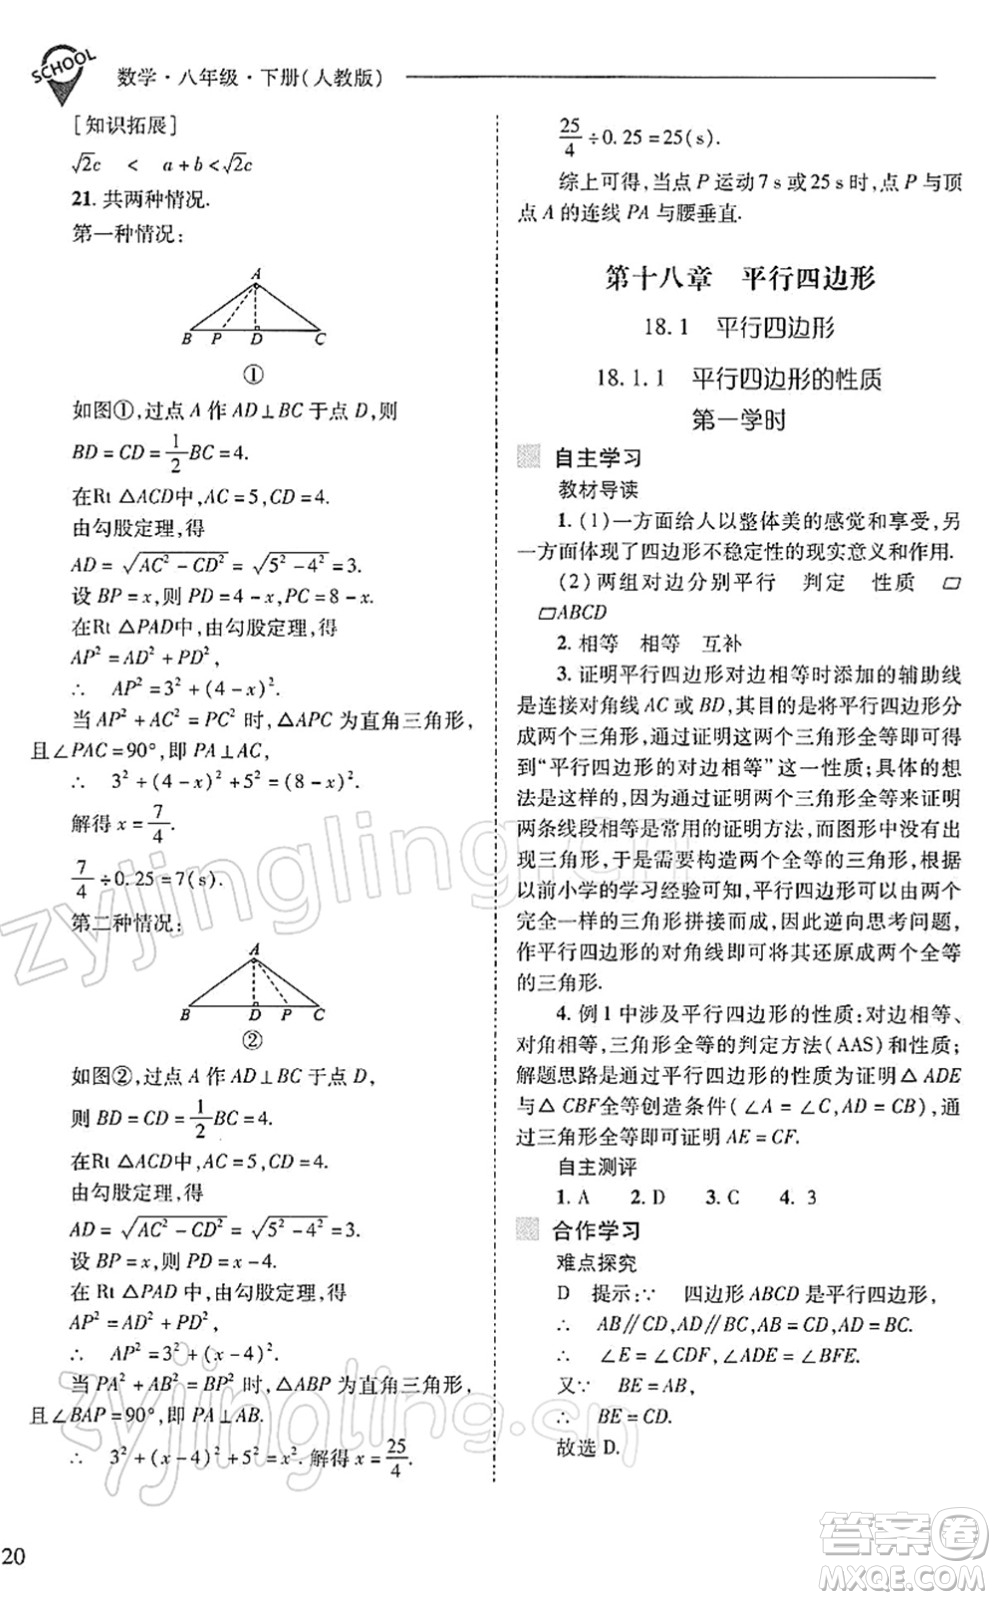 SCHOOL
数学·八年级·下册(人教版)
[知识拓展]
√2c < a+b<√2c
21. 共两种情况.
第一种情况:
A
B P D C
①
如图①,过点 A 作 AD⊥BC 于点 D,则
BD=CD=1/2BC=4.
在Rt △ACD中,AC=5,CD=4.
由勾股定理,得
AD=√(AC²-CD²)=√(5²-4²)=3.
设 BP=x,则 PD=4-x,PC=8-x.
在Rt △PAD中,由勾股定理,得
AP²=AD²+PD²,
∴ AP²=3²+(4-x)².
当 AP²+AC²=PC² 时,△APC 为直角三角形,
且∠PAC=90°,即 PA⊥AC,
∴ 3²+(4-x)²+5²=(8-x)².
解得 x=7/4.
7/4÷0.25=7(s).
第二种情况:
A
B D P C
②
如图②,过点 A 作 AD⊥BC 于点 D,
则 BD=CD=1/2BC=4.
在Rt △ACD中,AC=5,CD=4.
由勾股定理,得
AD=√(AC²-CD²)=√(5²-4²)=3.
设 BP=x,则 PD=x-4.
在 Rt △PAD 中,由勾股定理,得
AP²=AD²+PD²,
∴ AP²=3²+(x-4)².
当 PA²+AB²=BP² 时,△ABP 为直角三角形,
且∠BAP=90°,即 PA⊥AB.
∴ 3²+(x-4)²+5²=x². 解得 x=25/4.
20
25/4÷0.25=25(s).
综上可得,当点 P 运动7 s或25 s时,点 P 与顶
点 A 的连线 PA 与腰垂直.
第十八章 平行四边形
18.1 平行四边形
18.1.1 平行四边形的性质
第一学时
自主学习
教材导读
1. (1)一方面给人以整体美的感觉和享受,另
一方面体现了四边形不稳定性的现实意义和作用.
(2)两组对边分别平行 判定 性质 ▱
▱ABCD
2. 相等 相等 互补
3. 证明平行四边形对边相等时添加的辅助线
是连接对角线 AC 或 BD,其目的是将平行四边形分
成两个三角形,通过证明这两个三角形全等即可得
到“平行四边形的对边相等”这一性质;具体的思想方
法是这样的,因为通过证明两个三角形全等来证明
两条线段相等是常用的证明方法,而图形中却没有出
现三角形,于是需要构造两个全等的三角形,根据
以前小学的学习经验可知,平行四边形可以由两个
完全一样的三角形拼接而成,因此逆向思考问题,
作平行四边形的对角线即可将其还原成两个全等
的三角形.
4. 例 1 中涉及平行四边形的性质:对边相等、
对角相等,三角形全等的判定方法(AAS)和性质;
解题思路是通过平行四边形的性质为证明△ ADE
与△ CBF全等创造条件(∠A=∠C,AD=CB),通
过三角形全等即可证明 AE=CF.
自主测评
1. A 2. D 3. C 4. 3
合作学习
难点探究
D 提示:∵ 四边形 ABCD 是平行四边形,
∴ AB∥CD,AD∥BC,AB=CD.
∴ ∠E=∠CDF,∠ADE=∠BFE.
又∵ BE=AB,
∴ BE=CD.
故选 D.
zyjingling.cn
zyjingling.cn
答案圈
MXQE.COM